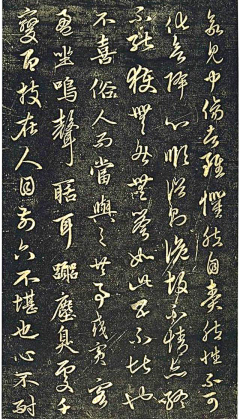 欲見中傷者雖懼然自責然性不可
化欲降心順俗則詭故不情亦終
不能獲無咎無譽如此五不堪也
不喜俗人而當與之共事或賓客
盈坐鳴聲聒耳囂塵臭處千
變百技在人目前六不堪也心不耐